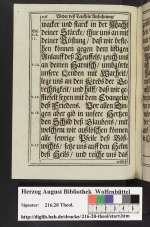 wacker und starck in der Macht
deiner Stärcke / thue uns an mit
deiner Rüstung / daß wir beste-
hen können gegen dem listigen
Anlauff deß Teuffels / zeuch uns
an deinen Harnisch / umbgürte
unsere Lenden mit Warheit /
lege uns an den Krebs der Ge-
rechtigkeit / und hilff / daß wir ge-
stiefelt seyen mit dem Evangelio
deß Friedens. Vor allen Din-
gen aber gib in unsere Herzen
den Schild deß Glaubens / mit
welchem wir außlöschen können
alle feurige Pfeile deß Böß-
wichts / setze uns auff den Helm
deß Heils / und reiche uns das
Herzog August Bibliothek Wolfenbüttel
Signatur: 216.28 Theol.
http://diglib.hab.de/drucke/216-28-theol/start.htm